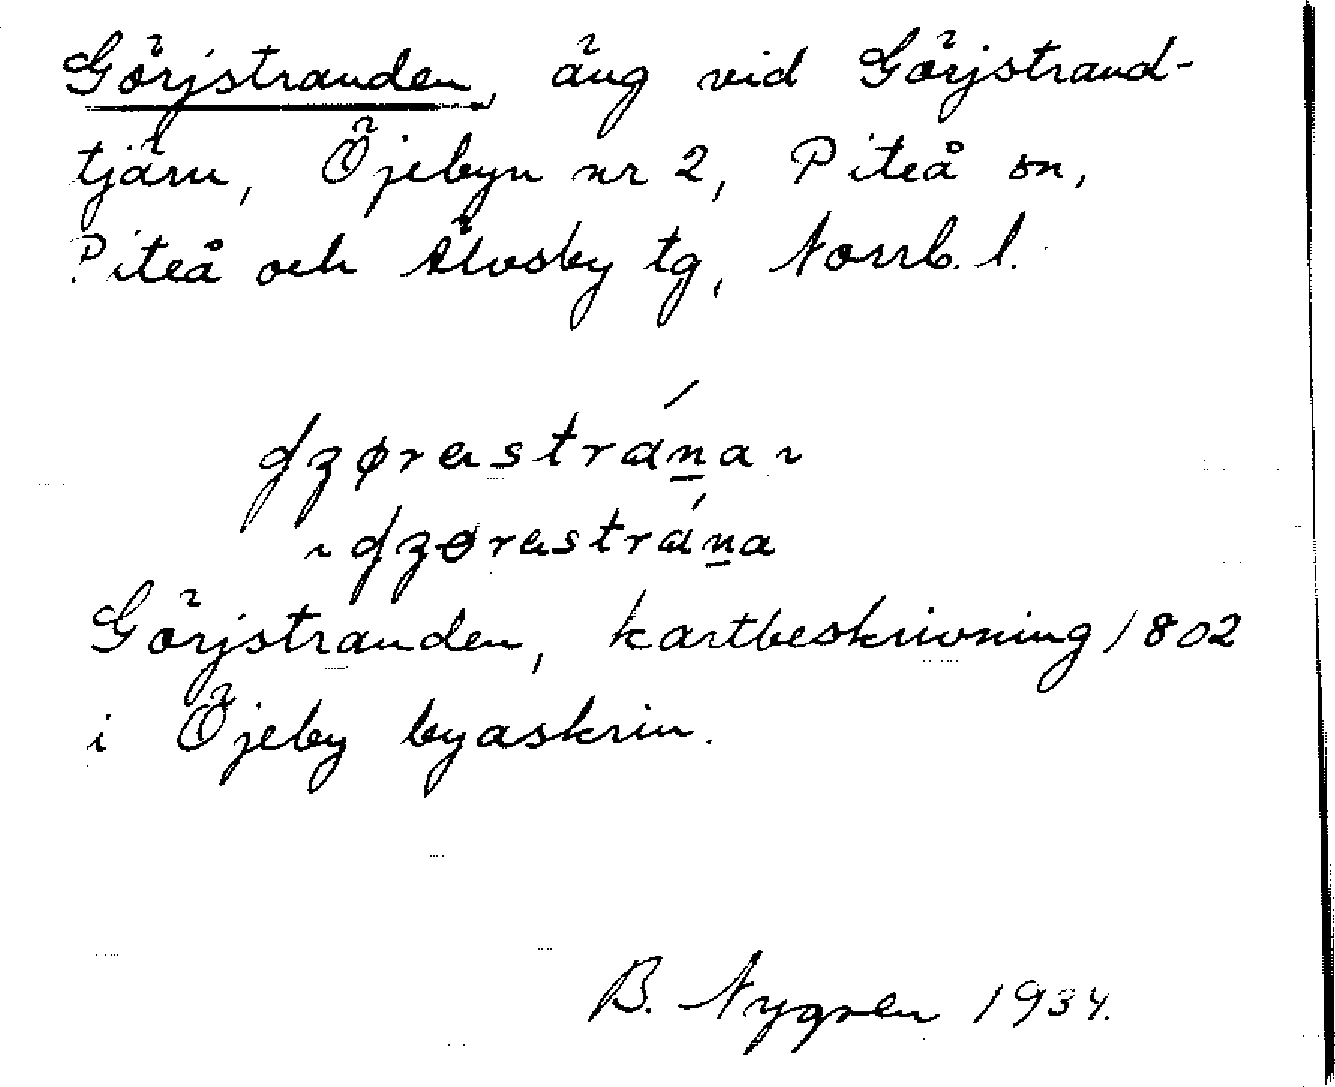 Görjstranden, äng vid Görjstrand-
tjärn, Öjebyn nr 2, Piteå sn,
Piteå och Älvsby tg, Norrb. l.
Görjstranden, kartbeskrivning 1802
i Öjeby byaskrin.
B. Nygren 1934.